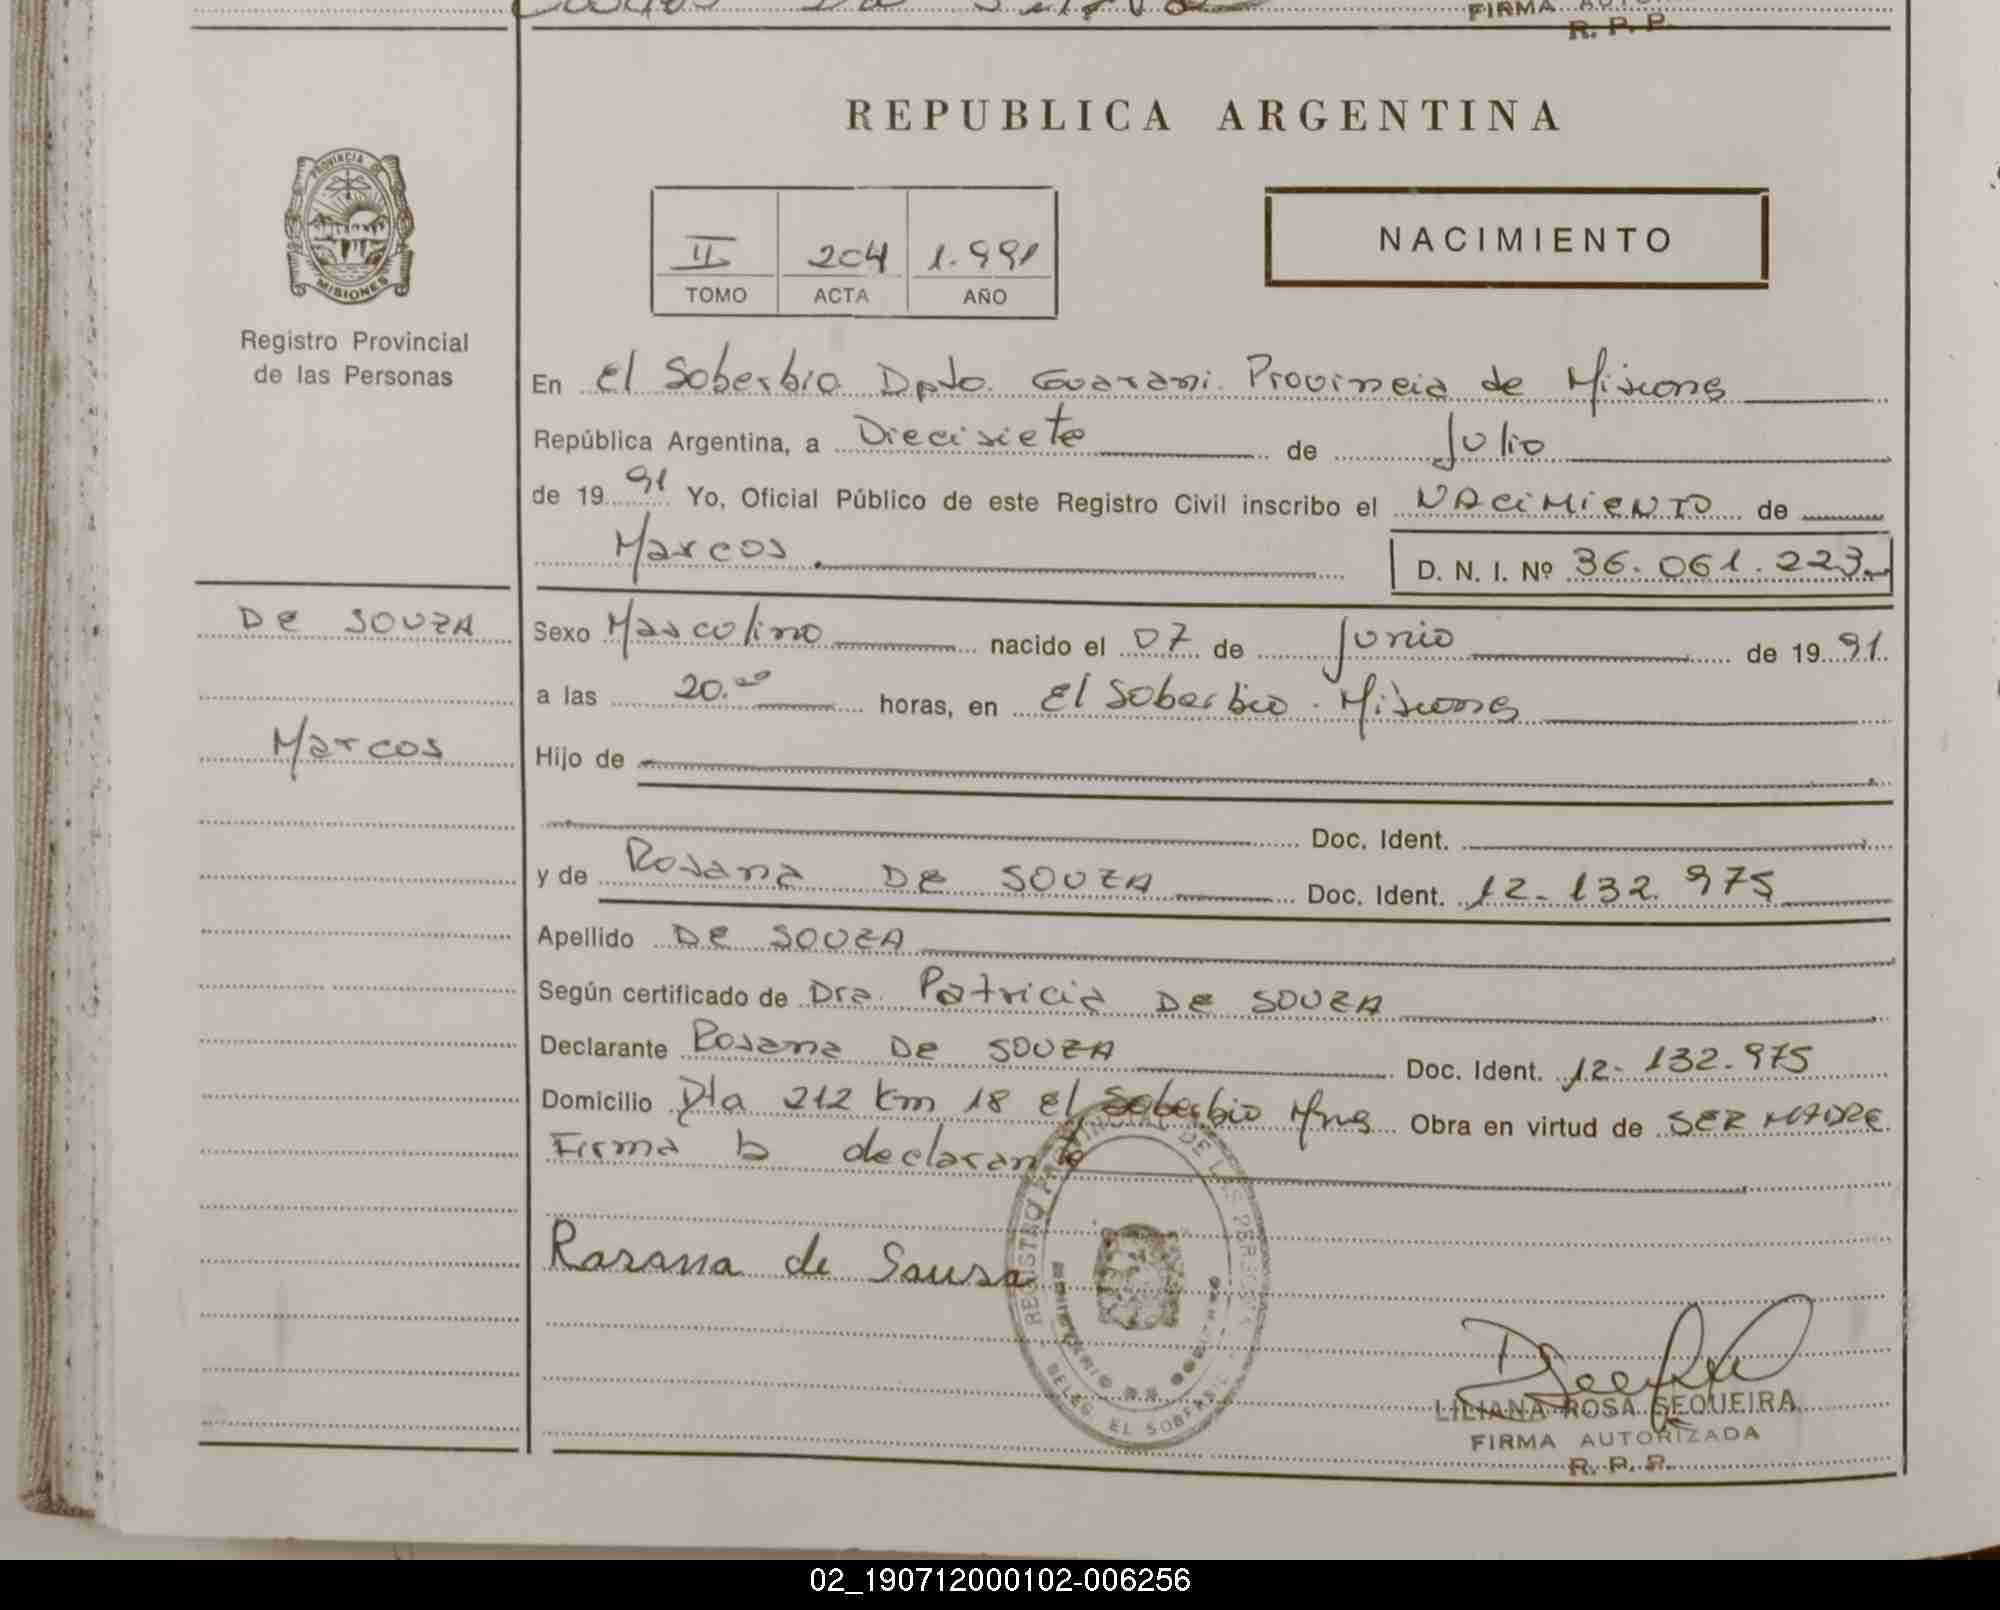 FIRMA AUTO
R. P. P.
REPUBLICA ARGENTINA
PROVINCIA DE
MISIONES
II 204 1.991
TOMO ACTA AÑO
NACIMIENTO
Registro Provincial
de las Personas
En El Soberbio Dpto. Guarani. Provincia de Misiones
República Argentina, a Diecisiete de Julio
de 19 91 Yo, Oficial Público de este Registro Civil inscribo el NACIMIENTO de
Marcos
D. N. I. Nº 36.061.223
DE SOUZA
Marcos
Sexo Masculino nacido el 07 de Junio de 19 91
a las 20.00 horas, en El Soberbio - Misiones
Hijo de
Doc. Ident.
y de Rosana DE SOUZA Doc. Ident. 12.132.975
Apellido DE SOUZA
Según certificado de Dra. Patricia DE SOUZA
Declarante Rosana DE SOUZA Doc. Ident. 12.132.975
Domicilio Pla 212 Km 18 El Soberbio Mnes Obra en virtud de SER MADRE
Firma la declarante
Rosana de Sousa
REGISTRO PROVINCIAL DE LAS PERSONAS
DELEG. EL SOBERBIO
LILIANA ROSA SEQUEIRA
FIRMA AUTORIZADA
R. P. P.
02_190712000102-006256